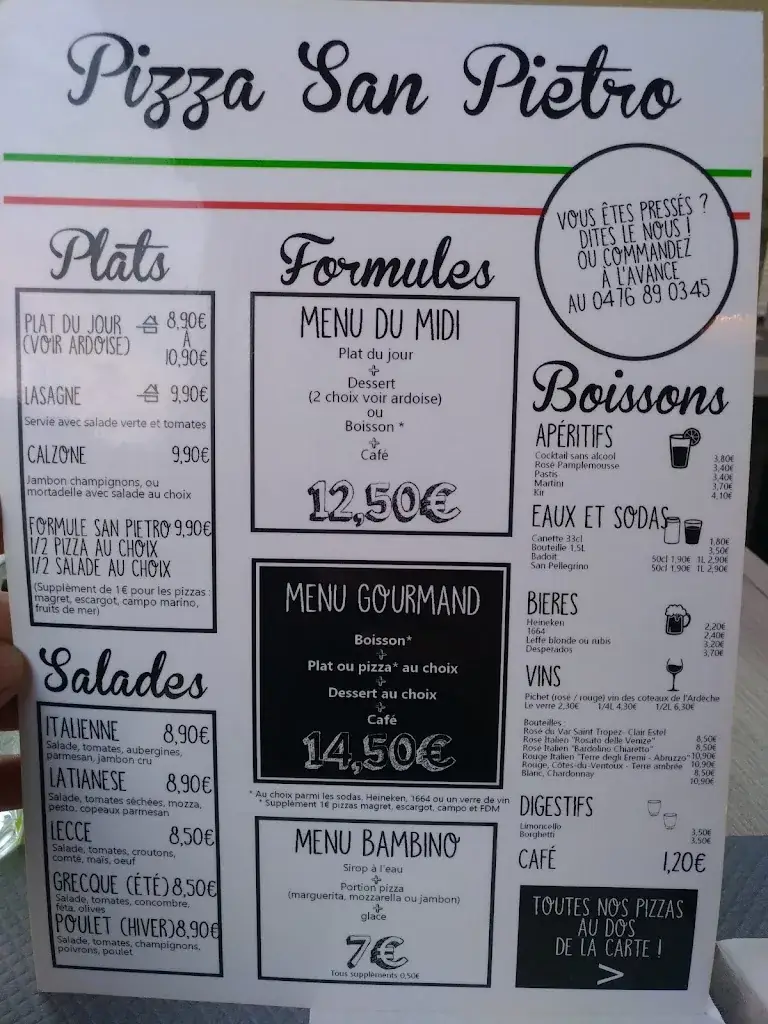 Pizza San Pietro
VOUS ÊTES PRESSÉS ?
DITES LE NOUS !
OU COMMANDEZ
À L'AVANCE
AU 0476 89 03 45
Plats
PLAT DU JOUR 8,90€
(VOIR ARDOISE) À
10,90€
LASAGNE 9,90€
Servie avec salade verte et tomates
CALZONE 9,90€
Jambon champignons, ou
mortadelle avec salade au choix
FORMULE SAN PIETRO 9,90€
1/2 PIZZA AU CHOIX
1/2 SALADE AU CHOIX
(Supplément de 1€ pour les pizzas :
magret, escargot, campo marino,
fruits de mer)
Salades
ITALIENNE 8,90€
Salade, tomates, aubergines,
parmesan, jambon cru
LATIANESE 8,90€
Salade, tomates séchées, mozza,
pesto, copeaux parmesan
LECCE 8,50€
Salade, tomates, croutons,
comté, maïs, oeuf
GRECQUE (ÉTÉ) 8,50€
Salade, tomates, concombre,
féta, olives
POULET (HIVER) 8,90€
Salade, tomates, champignons,
poivrons, poulet
Formules
MENU DU MIDI
Plat du jour
+
Dessert
(2 choix voir ardoise)
ou
Boisson *
+
Café
12,50€
MENU GOURMAND
Boisson*
+
Plat ou pizza* au choix
+
Dessert au choix
+
Café
14,50€
* Au choix parmi les sodas, Heineken, 1664 ou un verre de vin
* Supplément 1€ pizzas magret, escargot, campo et FDM
MENU BAMBINO
Sirop à l'eau
+
Portion pizza
(marguerita, mozzarella ou jambon)
+
glace
7€
Tous suppléments 0,50€
Boissons
APÉRITIFS
Cocktail sans alcool 3,80€
Rosé Pamplemousse 3,40€
Pastis 3,40€
Martini 3,70€
Kir 4,10€
EAUX ET SODAS
Canette 33cl 1,80€
Bouteille 1,5L 3,50€
Badoit 50cl 1,90€ 1L 2,90€
San Pellegrino 50cl 1,90€ 1L 2,90€
BIERES
Heineken 2,20€
1664 2,40€
Leffe blonde ou rubis 3,20€
Desperados 3,70€
VINS
Pichet (rosé / rouge) vin des coteaux de l'Ardèche
Le verre 2,30€ 1/4L 4,30€ 1/2L 6,30€
Bouteilles :
Rosé du Var Saint Tropez- Clair Estel 8,50€
Rosé Italien "Rosato delle Venize" 8,50€
Rosé Italien "Bardolino Chiaretto" 10,90€
Rouge Italien "Terre degli Eremi - Abruzzo" 10,90€
Rouge, Côtes-du-Ventoux - Terre ambrée 8,50€
Blanc, Chardonnay 10,90€
DIGESTIFS
Limoncello 3,50€
Borghetti 3,50€
CAFÉ 1,20€
TOUTES NOS PIZZAS
AU DOS
DE LA CARTE !
>